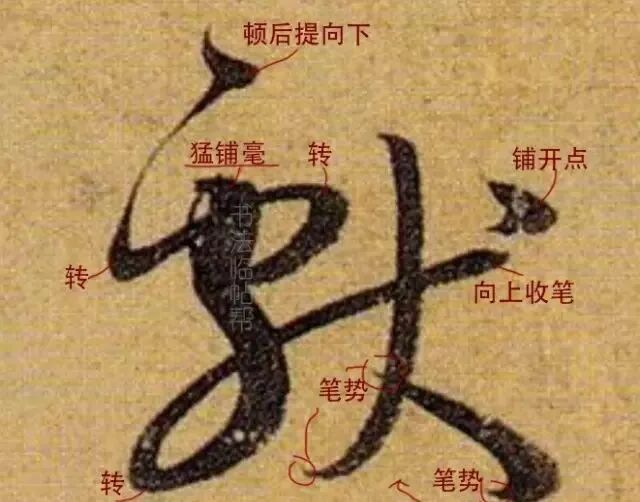 顿后提向下
猛铺毫
转
铺开点
书法临帖帮
转
向上收笔
笔势
转
笔势